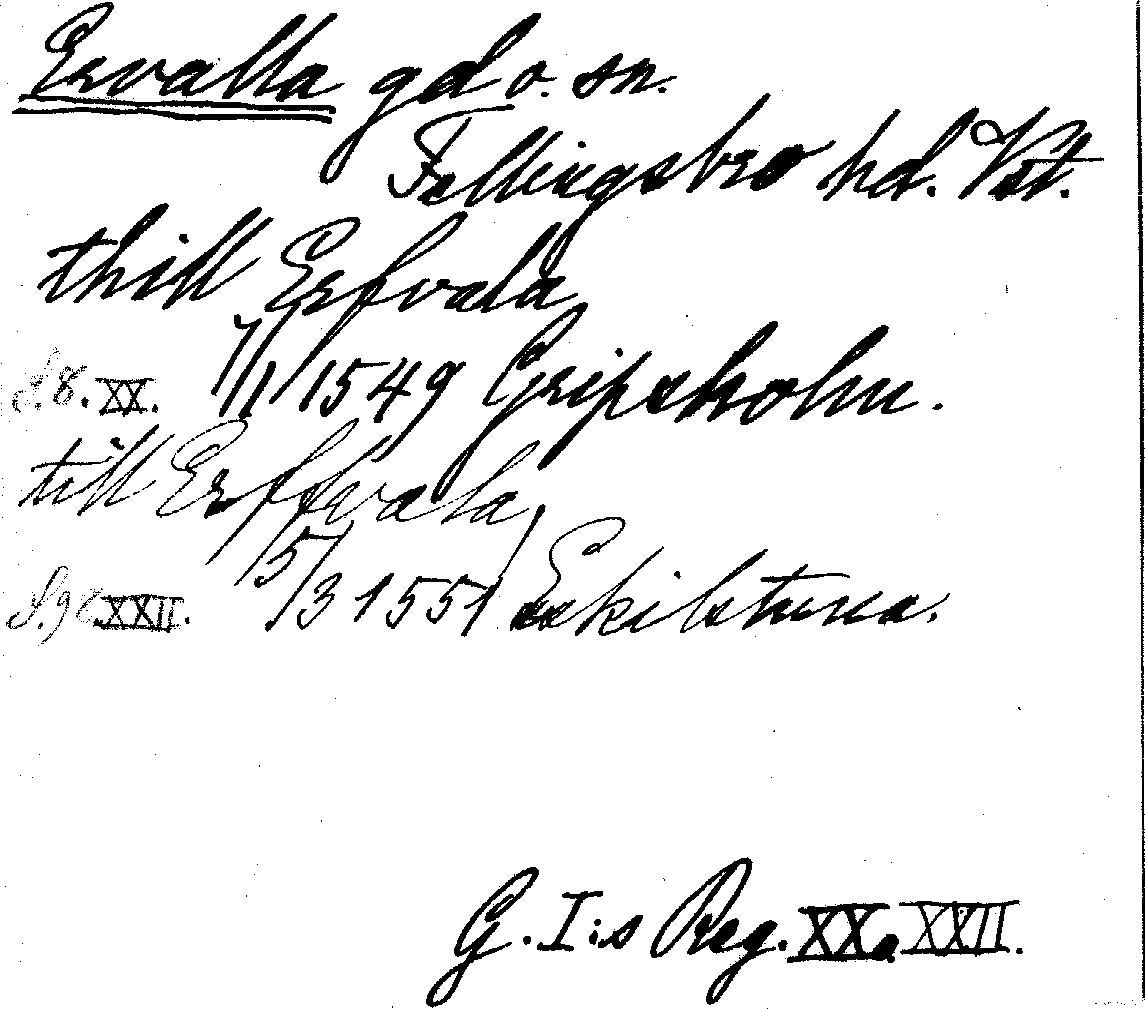 Ervalla gd o. sn.
Fellingsbro hd. Vstt.
thill Erfvala
S. 8. XX. 7/1 1549 Gripsholm.
till Erffvala
S. 98. XXII. 15/3 1551 Eskilstuna.
G. I:s Reg. XX. XXII.